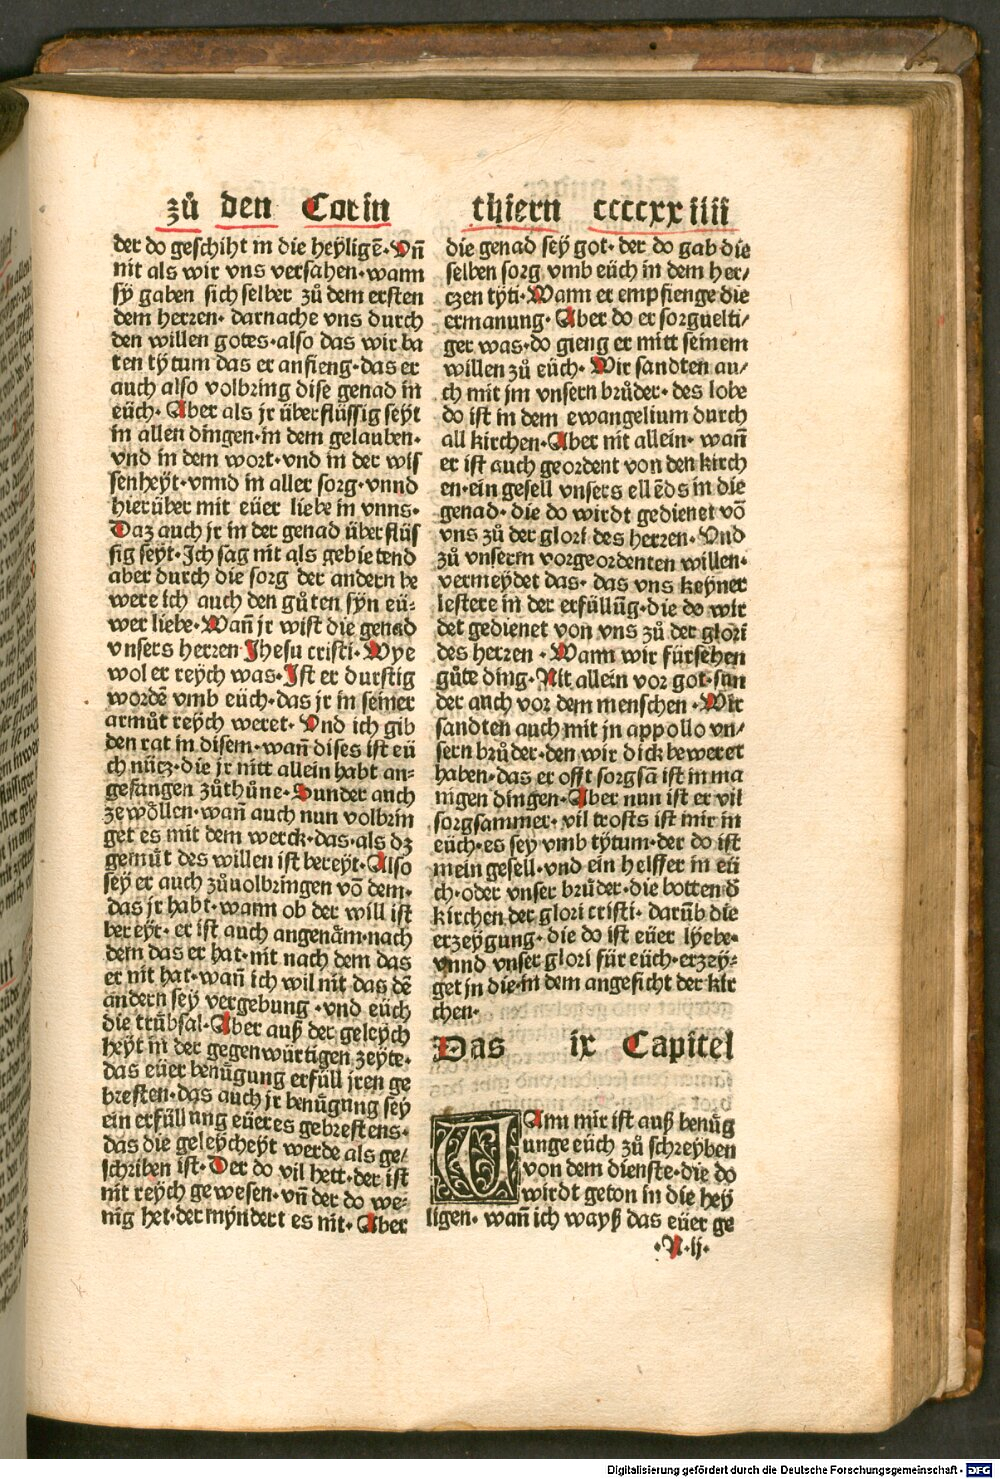 zů den Corin thiern ccccxxiiii
der do geschiht in die heyligē. Vn̄
nit als wir vns versahen. wann
sy gaben sich selber zů dem ersten
dem herren. darnache vns durch
den willen gotes. also das wir ba
ten tytum das er anfieng. das er
auch also volbring dise genad in
eüch. Aber als jr überflüssig seyt
in allen dingen. in dem gelauben.
vnd in dem wort. vnd in der wis
senheyt. vnnd in aller sorg. vnnd
hierüber mit eüer liebe in vnns.
Daz auch jr in der genad überflüs
sig seyt. Ich sag nit als gebietend
aber durch die sorg der andern be
were ich auch den gůten syn eü-
wer liebe. Wan̄ jr wist die genad
vnsers herren Jhesu cristi. Wye
wol er reych was. Ist er durstig
wordē vmb eüch. das jr in seiner
armůt reych weret. Vnd ich gib
den rat in disem. wan̄ dises ist eü
ch nücz. die jr nitt allein habt an-
gefangen zůthůne. Sunder auch
ze wöllen. wan̄ auch nun volbrin
get es mit dem werck. das. als dz
gemüt des willen ist bereyt. Also
sey er auch zůuolbringen vō dem.
das jr habt. wann ob der will ist
bereyt. er ist auch angenäm. nach
dem das er hat. nit nach dem das
er nit hat. wan̄ ich wil nit das dē
andern sey vergebung. vnd eüch
die trübsal. Aber auß der geleych
heyt in der gegenwürtigen zeyte.
das eüer benügung erfüll jren ge
bresten. das auch jr benügung sey
ein erfüllung eüer es gebrestens.
das die geleycheyt werde als ge/
schriben ist. Der do vil hett. der ist
nit reych gewesen. vn̄ der do we-
nig het. der myndert es nit. Aber
die genad sey got. der do gab die
selben sorg vmb eüch in dem her/
czen tyti. Wann er empfienge die
ermanung. Aber do er sorguelti/
ger was. do gieng er mitt seinem
willen zů eüch. Wir sandten au/
ch mit jm vnsern brůder. des lobe
do ist in dem ewangelium durch
all kirchen. Aber nit allein. wan̄
er ist auch geordent von den kirch
en. ein gesell vnsers ellēds in die
genad. die do wirdt gedienet vō
vns zů der glori des herren. Vnd
zů vnserin vorgeordenten willen.
vermeydet das. das vns keyner
lestere in der erfüllūg. die do wir
det gedienet von vns zů der glori
des herren. Wann wir fürsehen
gůte ding. Nit allein vor got. sun
der auch vor dem menschen. Wir
sandten auch mit jn appollo vn/
sern brůder. den wir dick beweret
haben. das er offt sorgsā ist in ma
nigen dingen. Aber nun ist er vil
sorgsammer. vil trosts ist mir in
eüch. es sey vmb tytum. der do ist
mein gesell. vnd ein helffer in eü
ch. oder vnser brüder. die botten d̄
kirchen der glori cristi. darūb die
erzeygung. die do ist eüer lyebe.
vnnd vnser glori für eüch. erzey-
get in die. in dem angesicht der kir
chen.
Das ix Capitel
WAnn mir ist auß benüg
unge eüch zů schreyben
von dem dienste. die do
wirdt geton in die hey
ligen. wan̄ ich wayß das eüer ge
.A.ij.
Digitalisierung gefördert durch die Deutsche Forschungsgemeinschaft - DFG